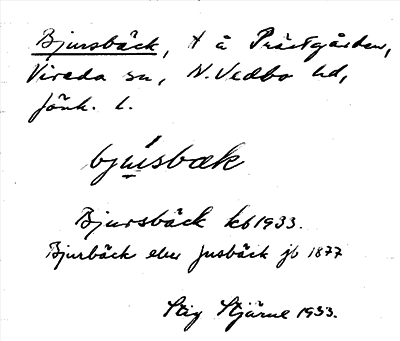 Bjursbäck, t å Prästgården,
Vireda sn, N. Vedbo hd,
Jönk. l.
bjusbæk
Bjursbäck kb 1933.
Bjurbäck eller Jusbäck jb 1877
Stig Stjärne 1933.